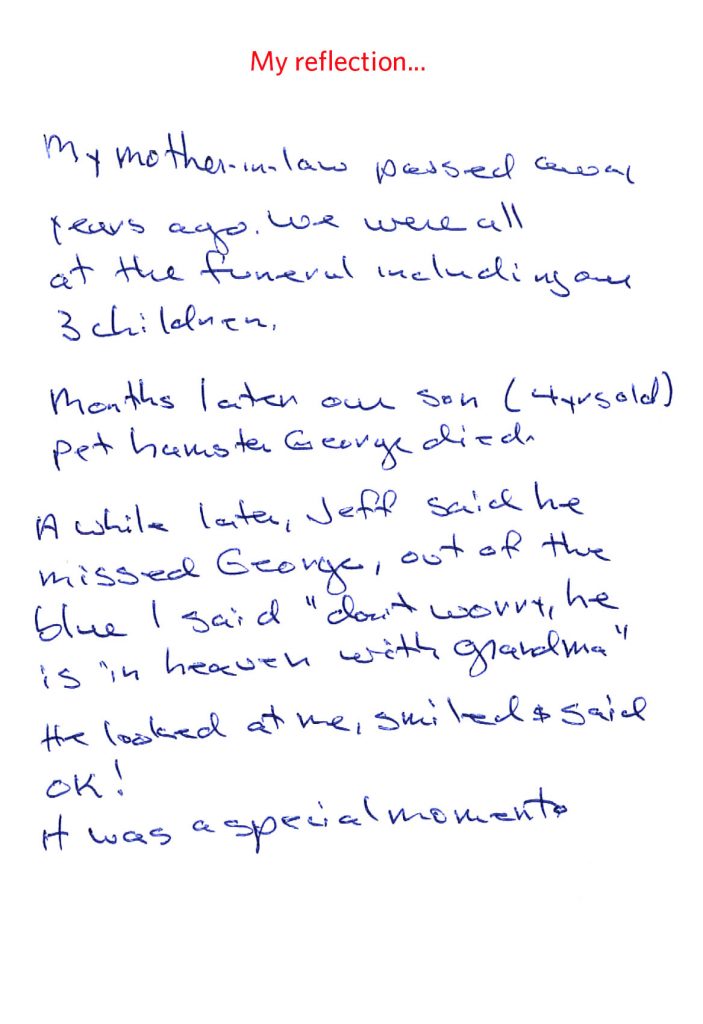 My reflection...
My mother-in-law passed away
years ago. We were all
at the funeral including our
3 children.
Months later our son (4yrs old)
pet hamster George died.
A while later, Jeff said he
missed George, out of the
blue I said "don't worry, he
is in heaven with grandma"
He looked at me, smiled & said
OK!
It was a special moment.